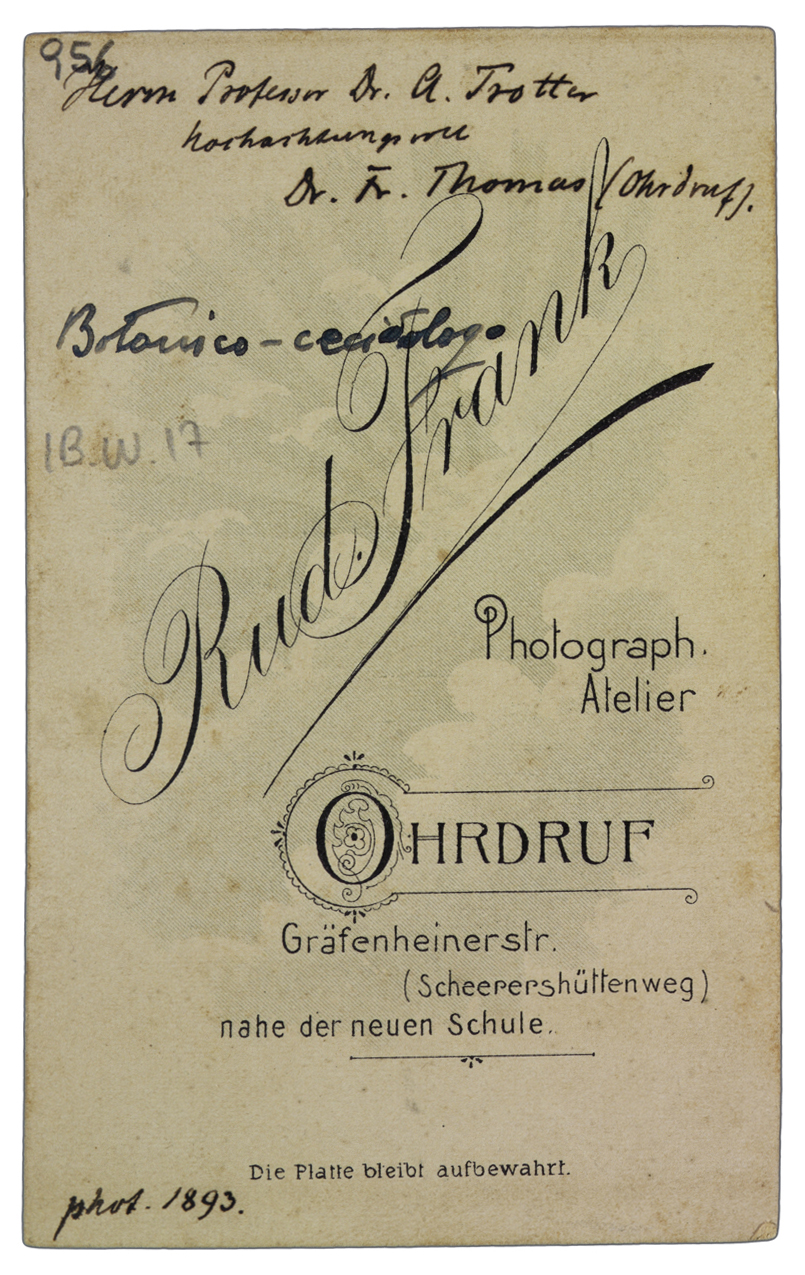 956
Herrn Professor Dr. A. Trotter
hochachtungsvoll
Dr. Fr. Thomas (Ohrdruf).
Botanico-cecidologo
IB.W.17
Rud. Frank
Photograph.
Atelier
OHRDRUF
Gräfenheinerstr.
(Scheepershüttenweg)
nahe der neuen Schule.
Die Platte bleibt aufbewahrt.
phot. 1893.